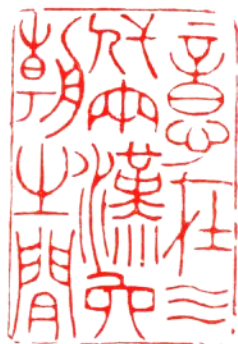 意在三
代兩漢六
朝之閒